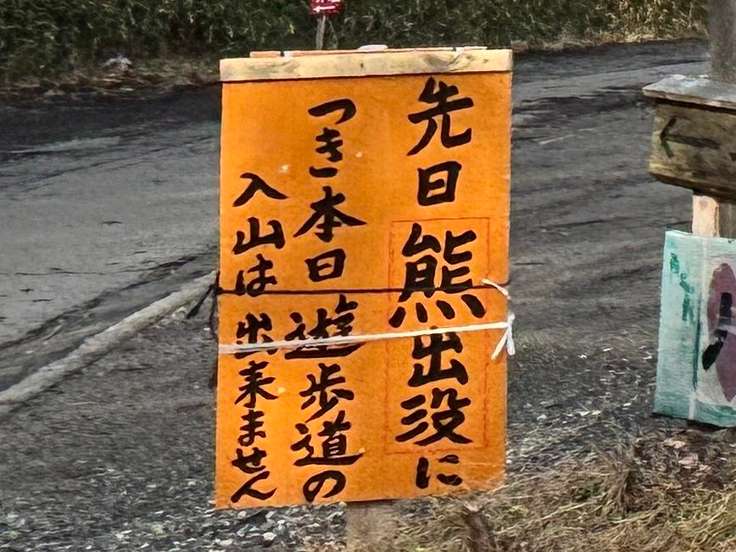 先日熊出没に
つき本日遊歩道の
入山は出来ません